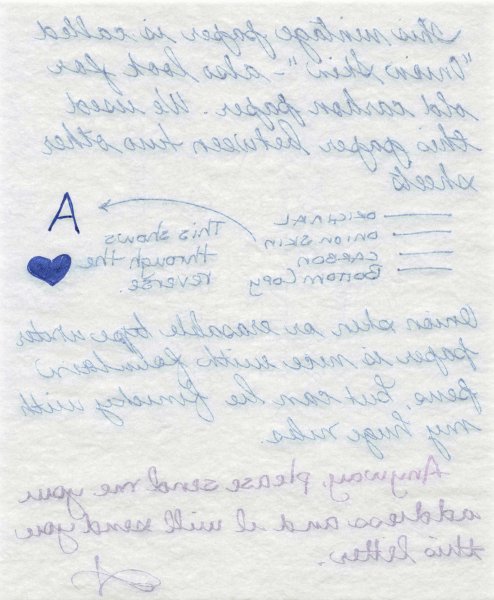 This vintage paper is called
"Onion Skin" - also look for
old carbon paper. We used
this paper between two other
sheets
ORIGINAL
ONION SKIN
CARBON
BOTTOM COPY
This shows
through the
reverse.
A
Onion skin or erasable type
paper is nice with fountain
pens, but can be finicky with
my huge nibs.
Anyway, please send me your
address and I will send you
this letter.